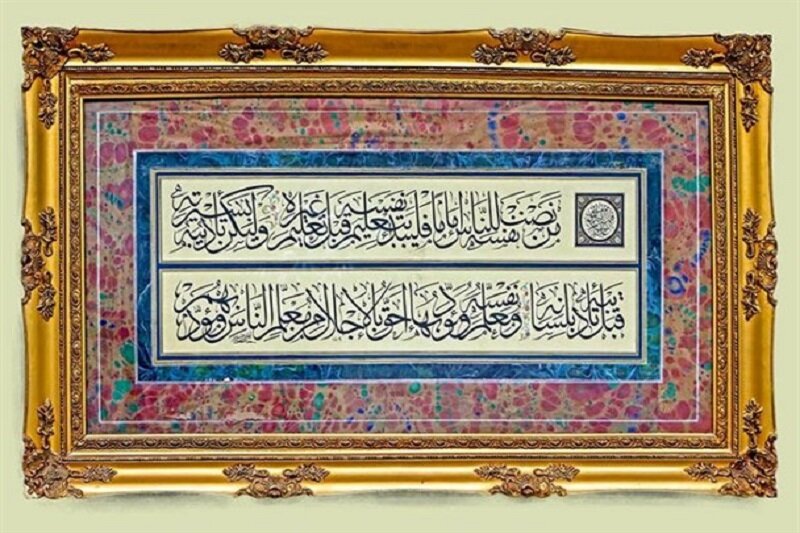 من نصب نفسه للناس إماما فليبدأ بتعليم نفسه قبل تعليم غيره وليكن تأديبه بسيرته
قبل تأديبه بلسانه ومعلم نفسه ومؤدبها أحق بالإجلال من معلم الناس ومؤدبهم